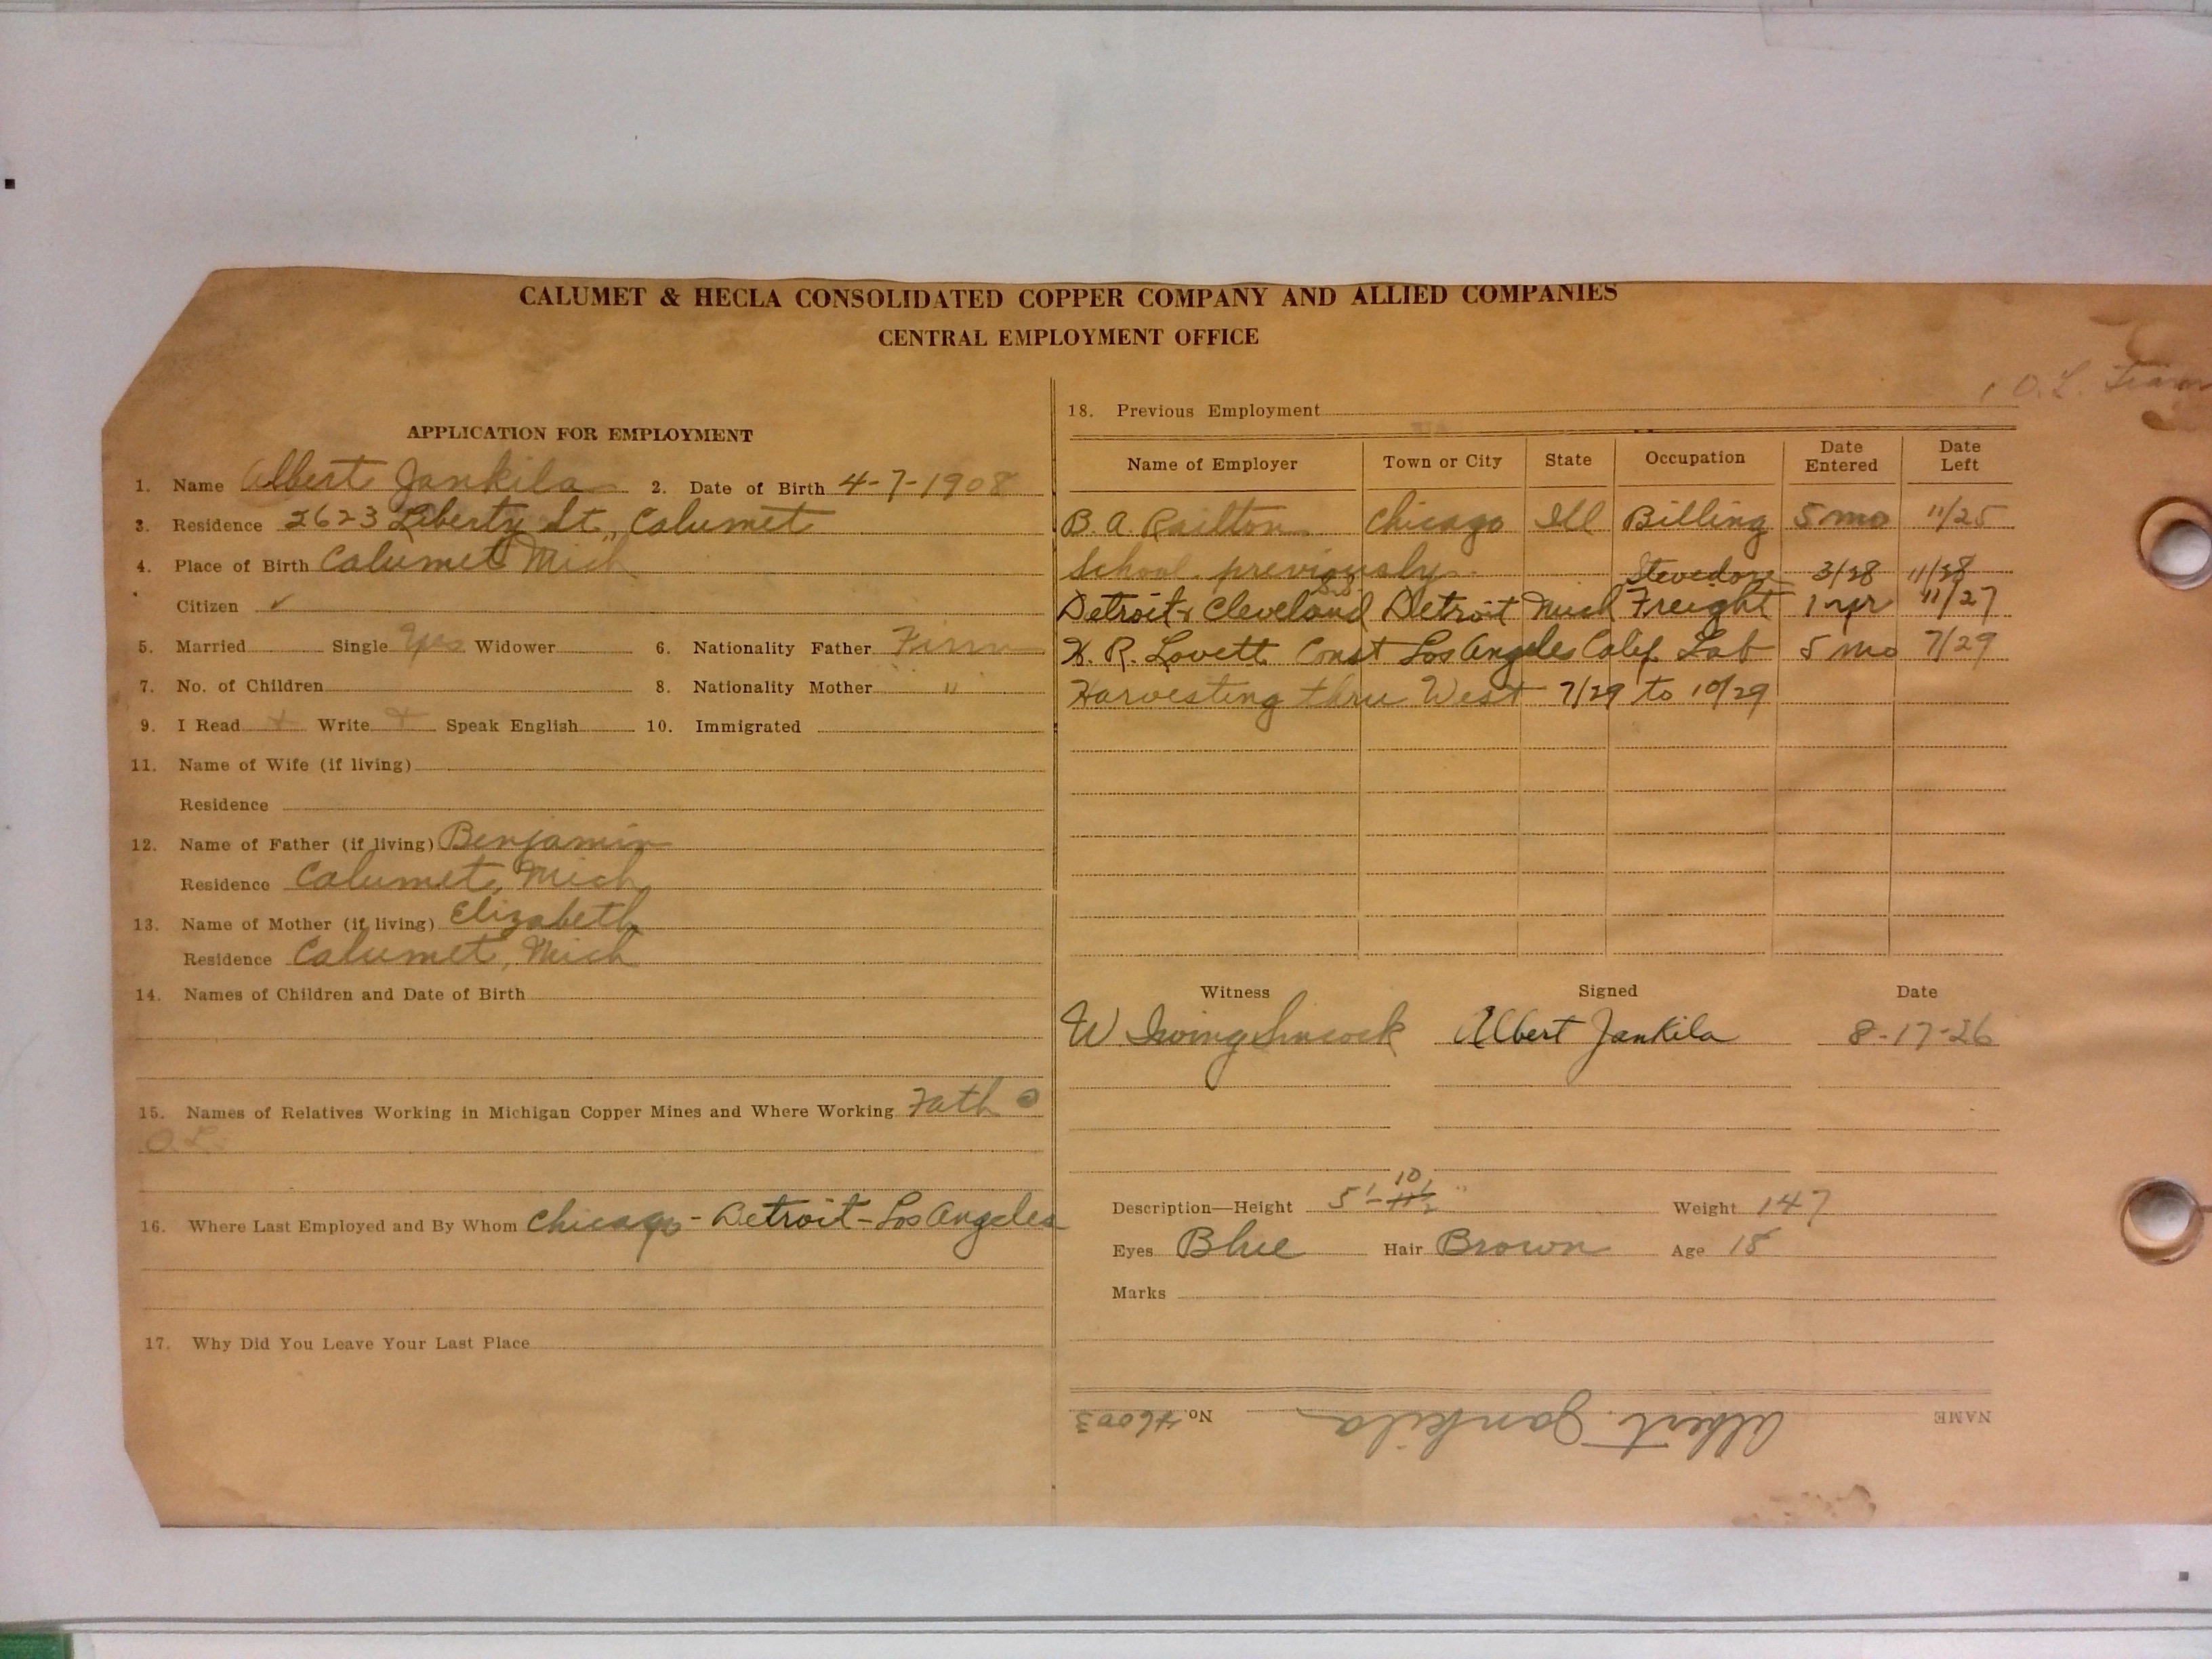 CALUMET & HECLA CONSOLIDATED COPPER COMPANY AND ALLIED COMPANIES
CENTRAL EMPLOYMENT OFFICE
APPLICATION FOR EMPLOYMENT
1. Name Albert Jankila 2. Date of Birth 4-7-1908
3. Residence 2623 Liberty St., Calumet
4. Place of Birth Calumet Mich
Citizen ✓
5. Married Single Yes Widower 6. Nationality Father Finn
7. No. of Children 8. Nationality Mother "
9. I Read + Write + Speak English 10. Immigrated
11. Name of Wife (if living)
Residence
12. Name of Father (if living) Benjamin
Residence Calumet, Mich
13. Name of Mother (if living) Elizabeth
Residence Calumet, Mich
14. Names of Children and Date of Birth
15. Names of Relatives Working in Michigan Copper Mines and Where Working Fath
O.L.
16. Where Last Employed and By Whom Chicago - Detroit - Los Angeles
17. Why Did You Leave Your Last Place
O.L.
18. Previous Employment
Name of Employer Town or City State Occupation Date Entered Date Left
B. A. Railton Chicago Ill Billing 5 mo 11/25
School previously Stevedore 3/28 11/28
Detroit & Cleveland Detroit Mich Freight 1 yr 11/27
H. R. Lovett Const Los Angeles Calif Lab 5 mo 7/29
Harvesting thru West 7/29 to 10/29
Witness Signed Date
W. Irving Sincock Albert Jankila 8-17-26
Description—Height 5'- 10 11½" Weight 147
Eyes Blue Hair Brown Age 18
Marks
NAME Albert Jankila No. 46003